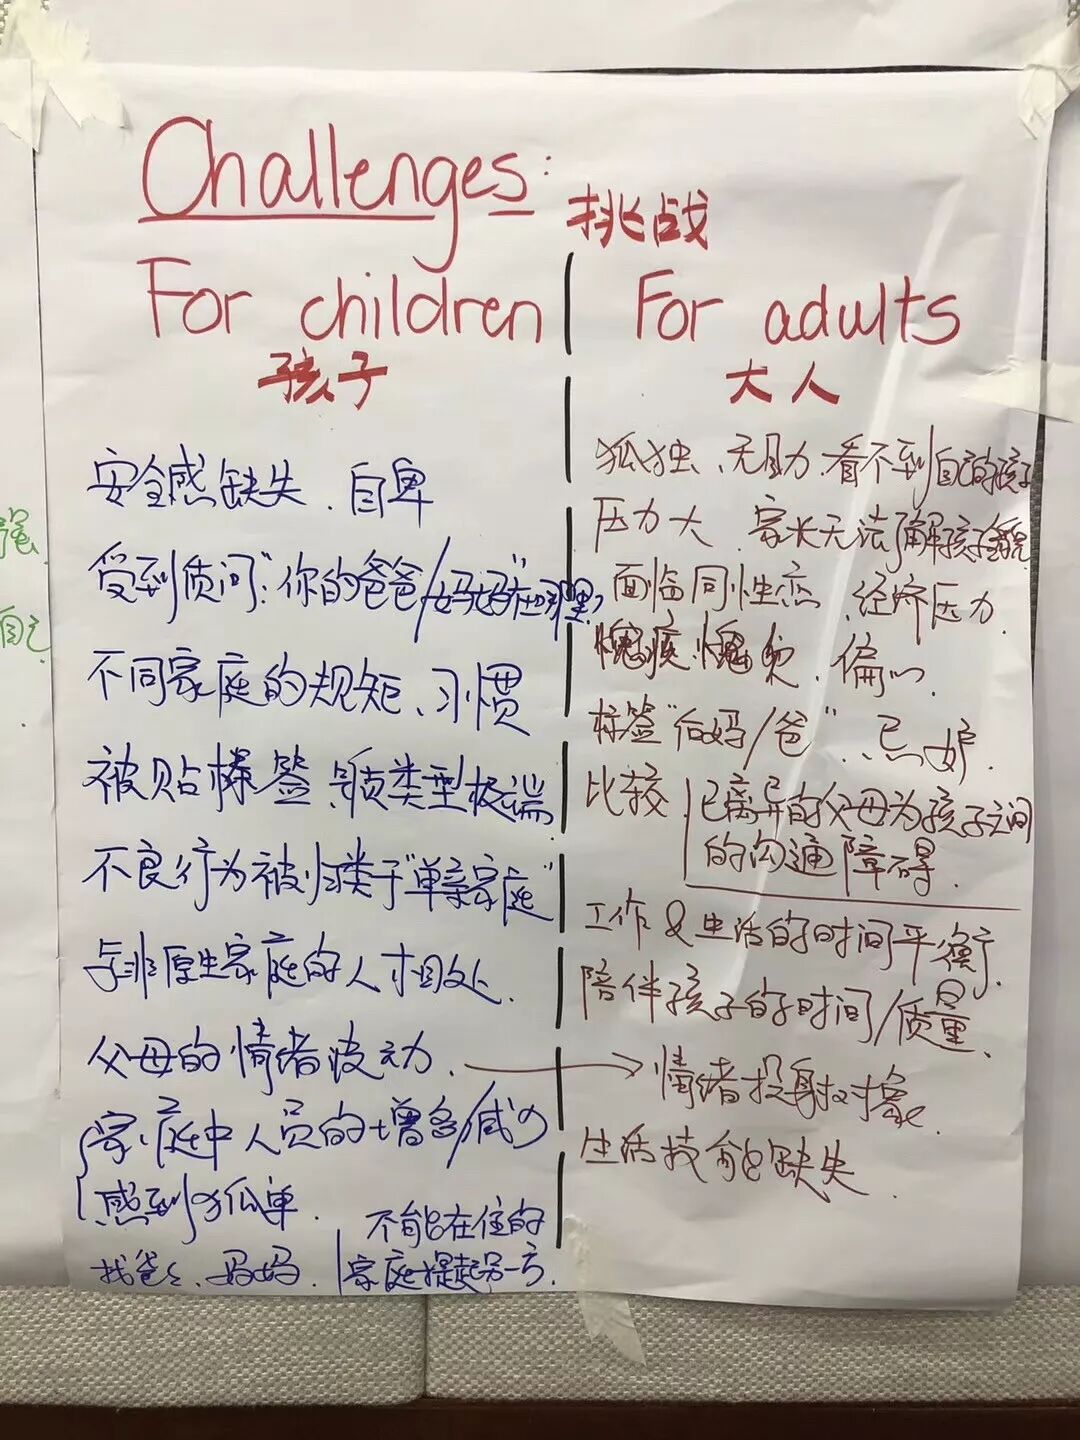 Challenges:
挑战
For children
孩子
安全感缺失、自卑
受到质问:"你的爸爸/妈妈"在哪里?
不同家庭的规矩、习惯
被贴标签、类型极端
不良行为被归类于"单亲家庭"
与非原生家庭的人相处.
父母的情绪波动.
家庭中人员的增多/减少
感到孤单.
找爸爸、妈妈.
不能在住的
家庭提起另一方.
For adults
大人
孤独、无助、看不到自己的孩子
压力大、家长无法了解孩子全貌
面临同性恋、经济压力.
愧疚、偏心.
标签"后妈/爸"、忌妒.
比较
已离异的父母为孩子之间
的沟通障碍.
工作&生活的时间平衡.
陪伴孩子的时间/质量.
情绪投射对象.
生活技能缺失.
强
自己